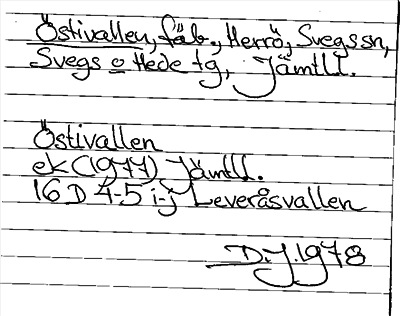 Östivallen, fäb., Herrö, Svegs sn,
Svegs o Hede tg, Jämtl l.
Östivallen
ek (1977) Jämtl l.
16 D 4-5 i-j Leveråsvallen
D.J. 1978